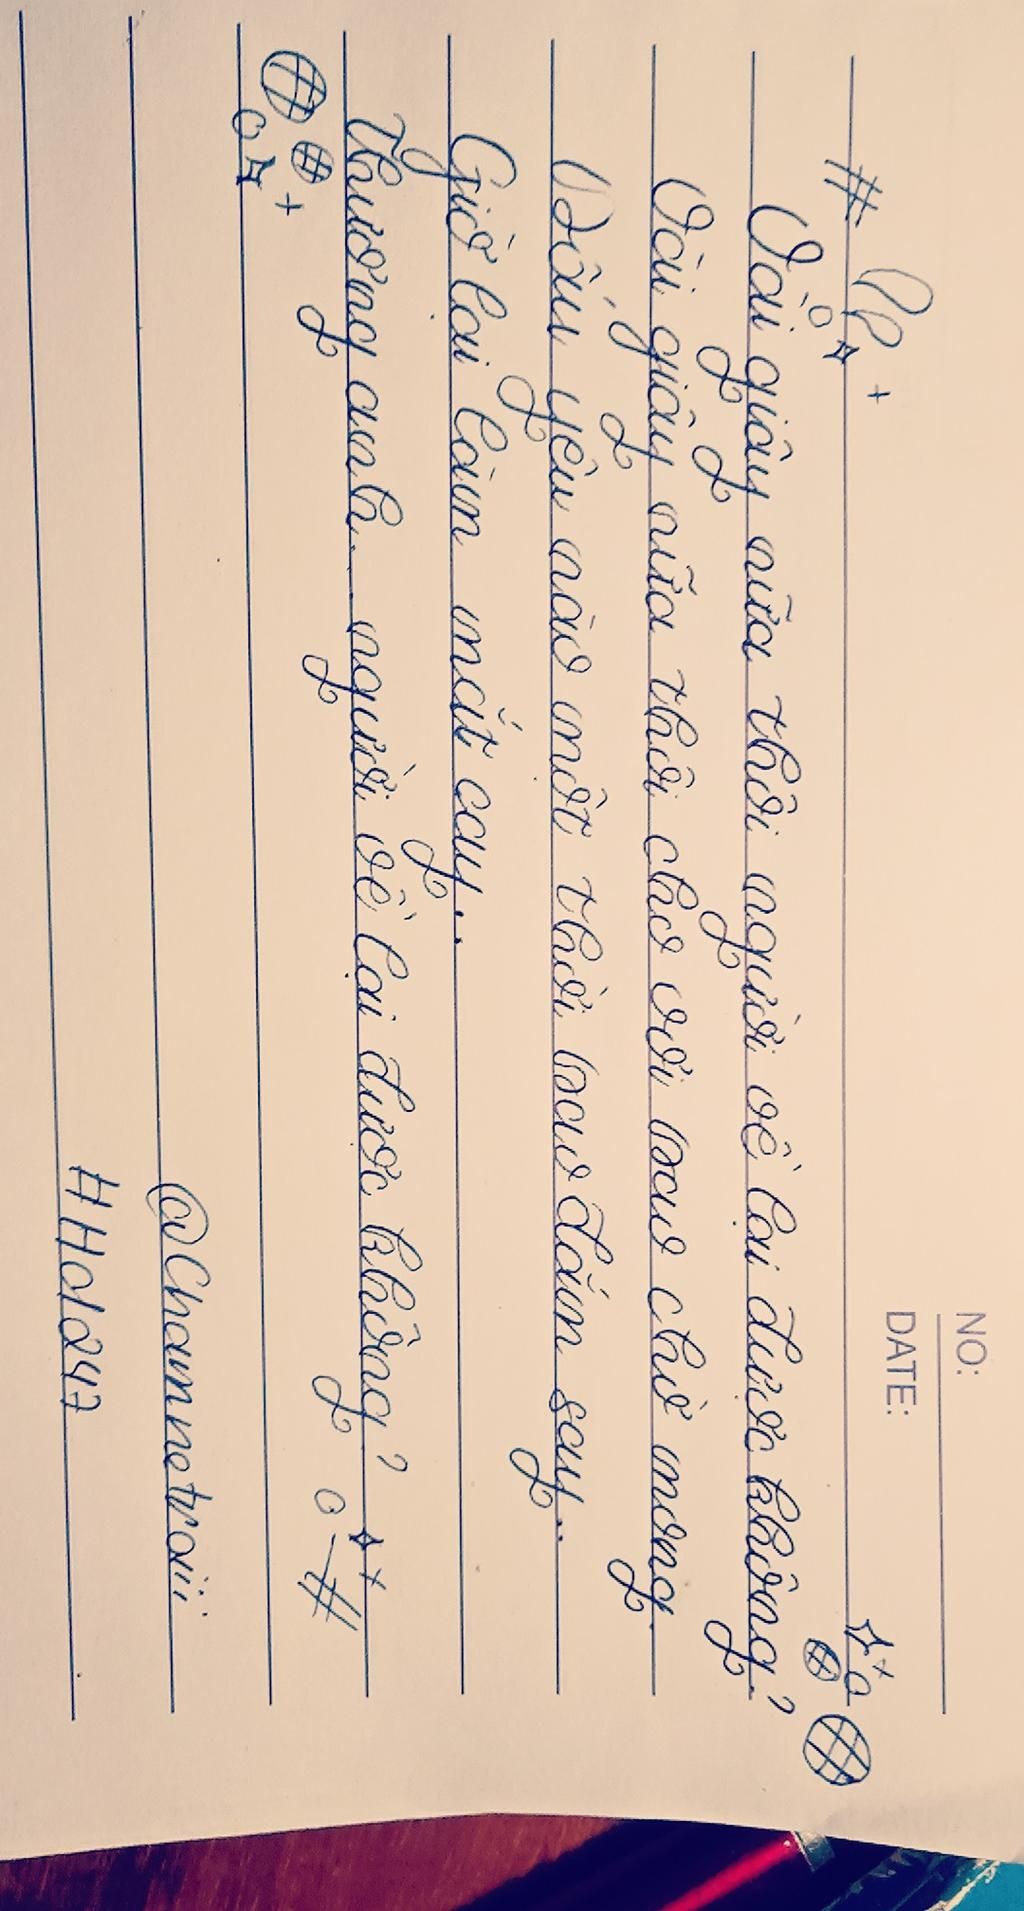 NO:
DATE:
Vài giây nữa thôi người về lại được không?
Vài giây nữa thôi cho vơi bao chờ mong.
Dấu yêu nào một thời bao đắm say..
Giờ lại làm mắt cay..
Thương anh.. người về lại được không?
@Chamnetraii
#Hd247